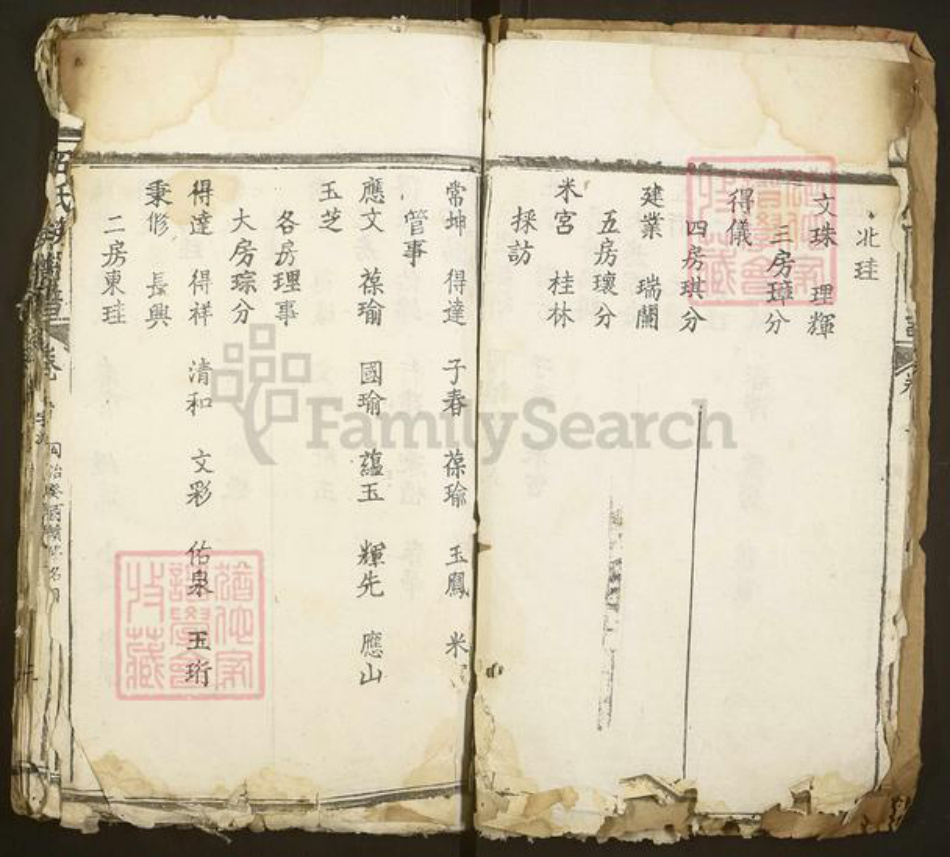 北珪
文珠 理輝
三房璋分
得儀
四房琪分
建業 瑞蘭
五房瓌分
米宮 桂林
採訪
常坤 得達 子春 葆瑜 玉鳳 米
管事
應文 葆瑜 國瑜 蘊玉 輝先 應山
玉芝
各房理事
大房琮分
得達 得祥 清和 文彩 佑泉 玉珩
秉修 長興
二房東珪
氏
卷
同治癸酉續 名目
FamilySearch